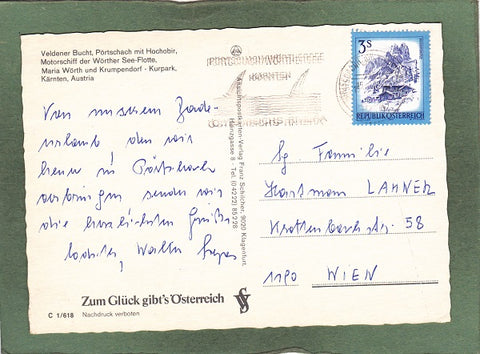 Veldener Bucht, Pörtschach mit Hochobir,
Motorschiff der Wörther See-Flotte,
Maria Wörth und Krumpendorf - Kurpark,
Kärnten, Austria
PÖRTSCHACH WÖRTHERSEE
KÄRNTEN
3S
REPUBLIK ÖSTERREICH
Von unserem Bade-
urlaub den wir
heuer in Pörtschach
verbringen, senden wir
die herzlichsten Grüße
Walter
Ansichtspostkarten-Verlag Franz Schilcher, 9020 Klagenfurt,
Hainzgasse 8 - Tel. (04222) 85 5 28
Familie
Hartmann LAHNER
Krottenbachstr. 58
1190 WIEN
Zum Glück gibt's Österreich
C 1/618 Nachdruck verboten